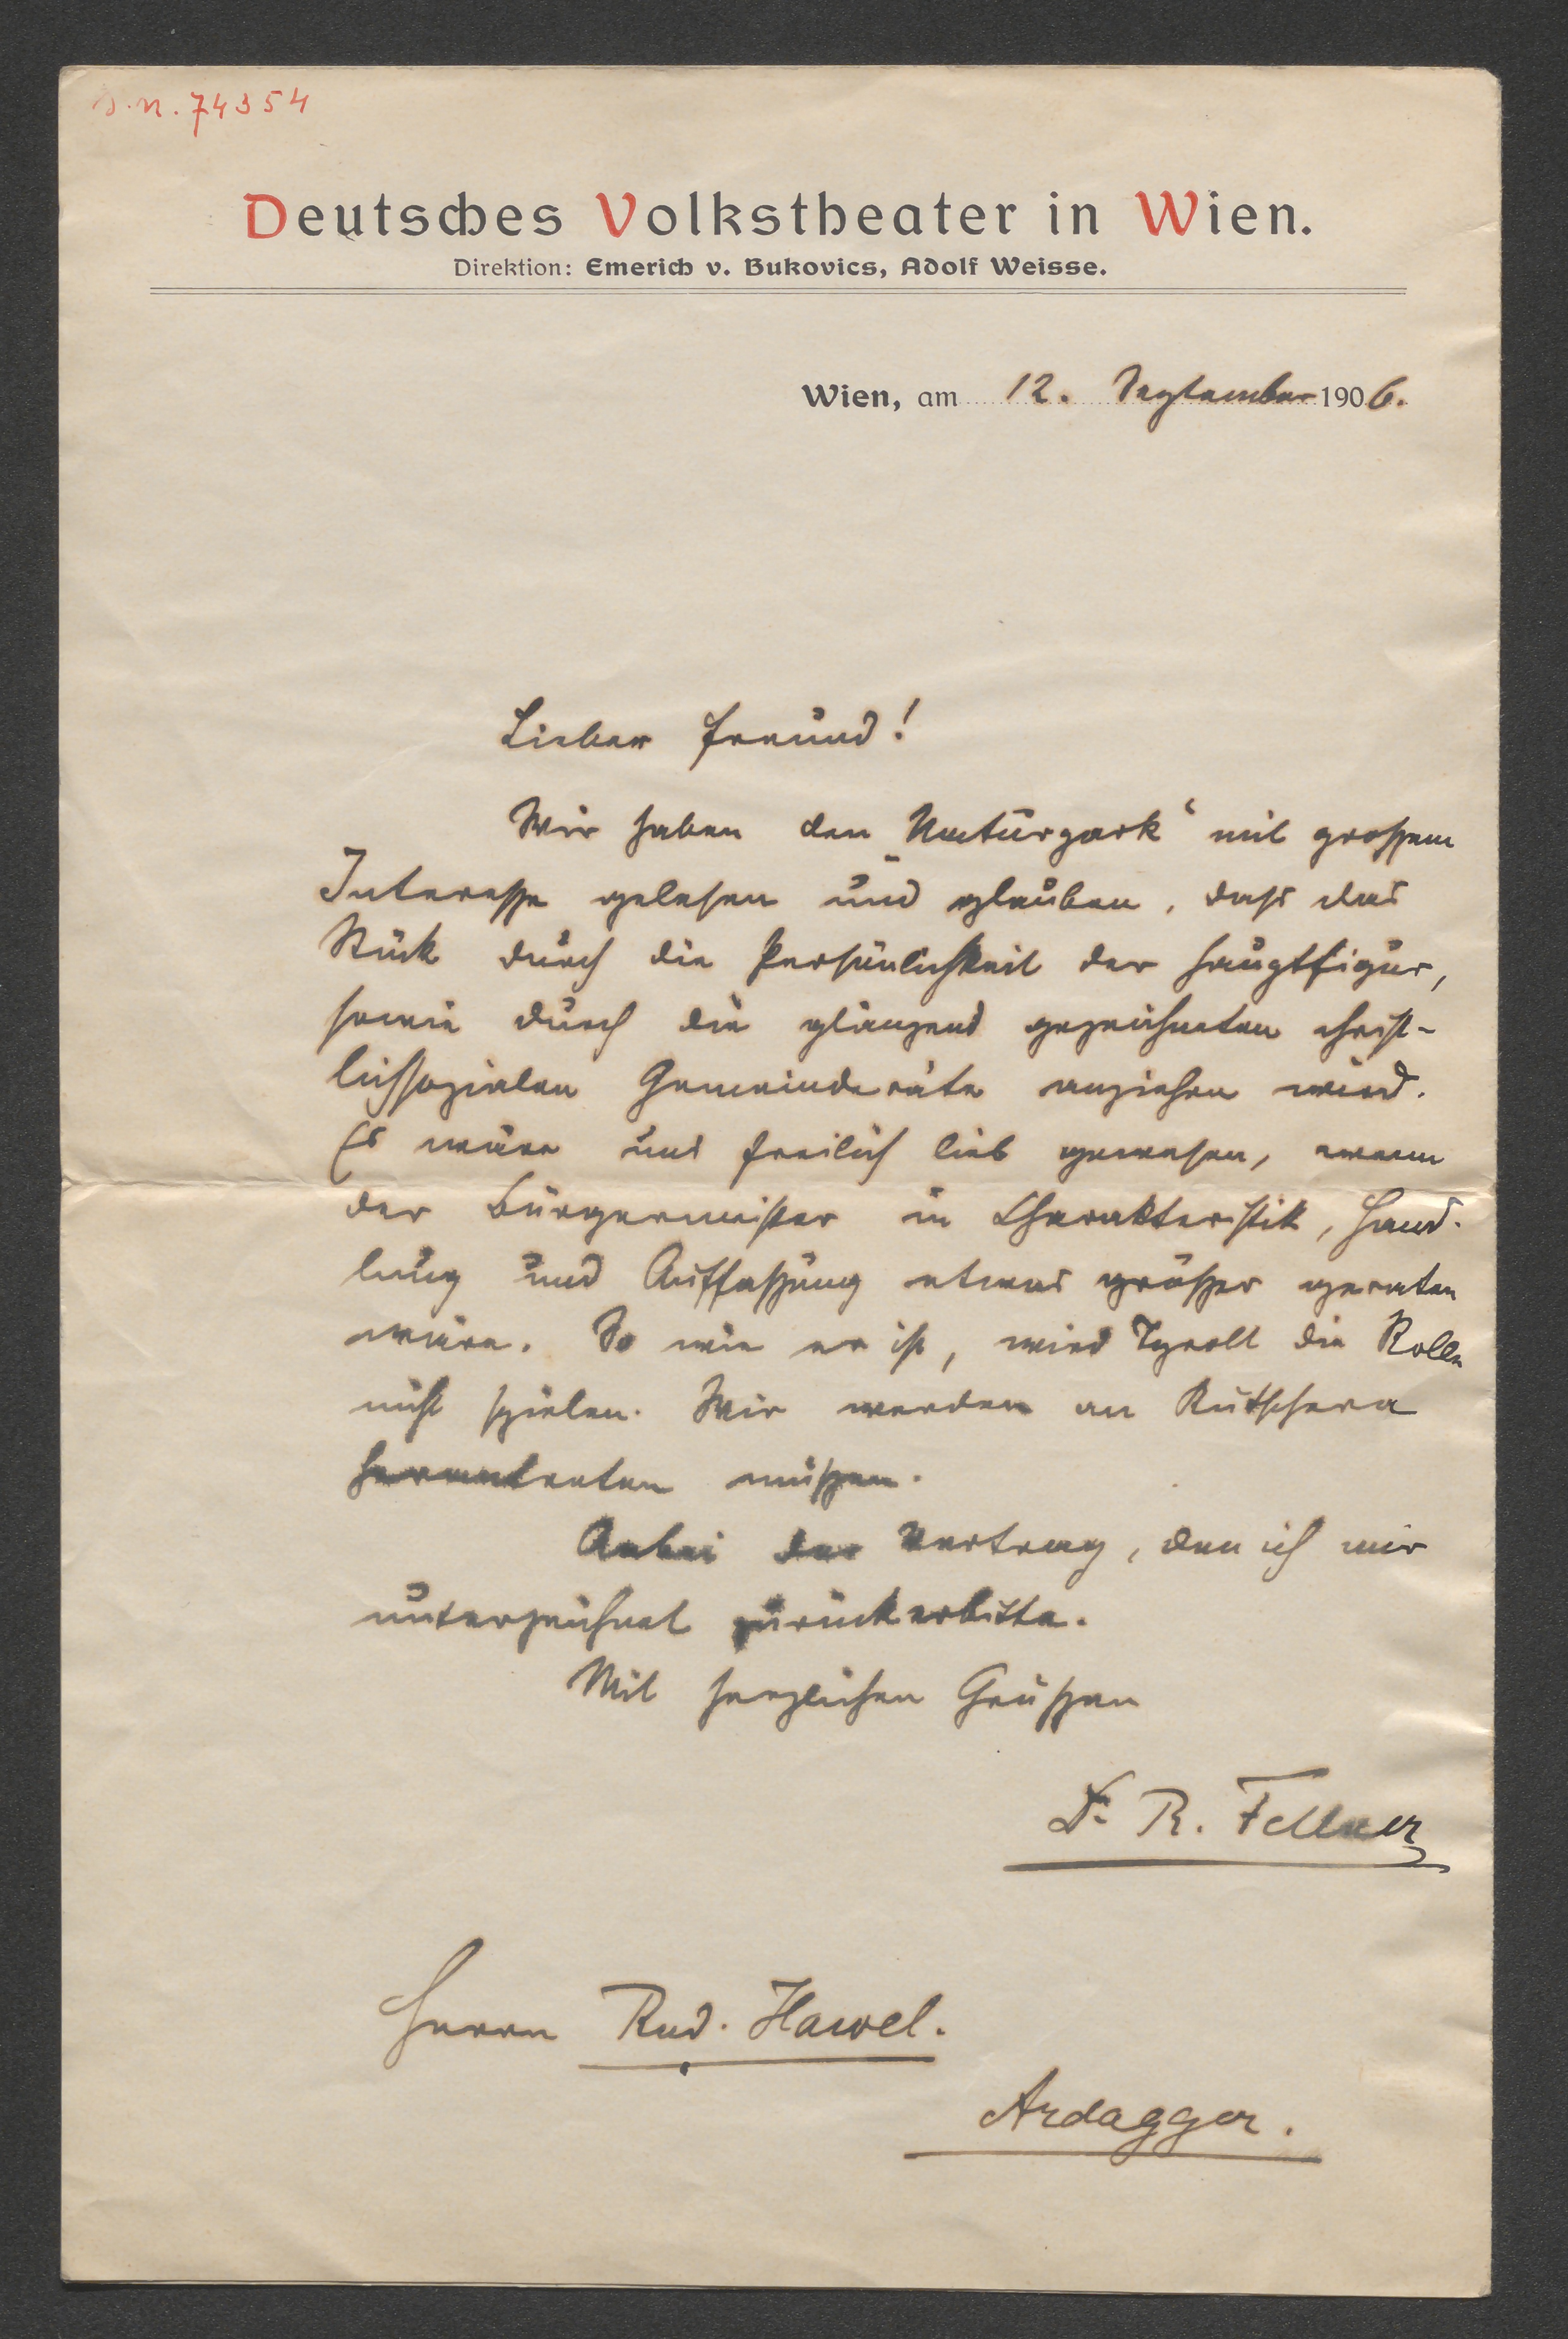 J.N. 74354
Deutsches Volkstheater in Wien.
Direktion: Emerich v. Bukovics, Adolf Weisse.
Wien, am 12. September 1906.
Lieber Freund!
Wir haben den „Naturpark“ mit grossem
Interesse gelesen und glauben, dass das
Stück durch die Persönlichkeit der Hauptfigur,
sowie durch die glänzend gezeichneten christ-
lichsozialen Gemeinderäte anziehen wird.
Es wäre uns freilich lieb gewesen, wenn
der Bürgermeister in Charakteristik, Hand-
lung und Auffassung etwas grösser geraten
wäre. So wie er ist, wird Tyrolt die Rolle
nicht spielen. Wir werden an Kutschera
herantreten müssen.
Anbei der Vertrag, den ich mir
unterzeichnet zurückerbitte.
Mit herzlichen Grüssen
Dr. R. Fellner
Herrn Rud. Hawel.
Ardagger.